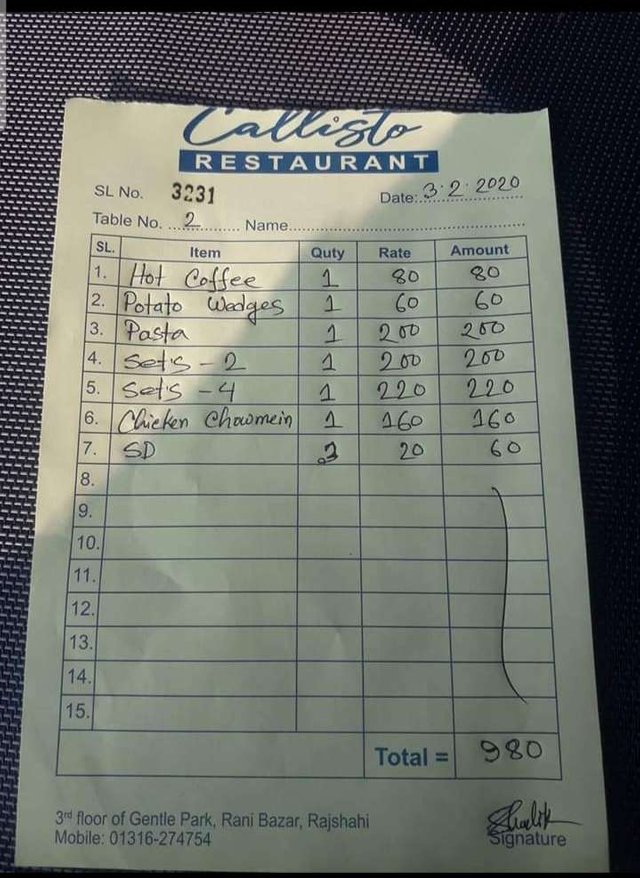 Callisto
RESTAURANT
SL No. 3231 Date: 3.2.2020
Table No. 2 Name
SL. Item Quty Rate Amount
1. Hot Coffee 1 80 80
2. Potato Wedges 1 60 60
3. Pasta 1 200 200
4. Set's - 2 1 200 200
5. Set's - 4 1 220 220
6. Chicken Chowmein 1 160 160
7. SD 3 20 60
8.
9.
10.
11.
12.
13.
14.
15.
Total = 980
3rd floor of Gentle Park, Rani Bazar, Rajshahi
Mobile: 01316-274754
Signature